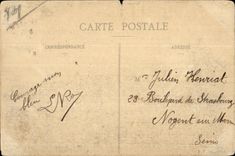 CARTE POSTALE
CORRESPONDANCE
ADRESSE
Courage mon
bleu
Mr Julien Henriat
28 Boulevard de Strasbourg
Nogent sur Marne
Seine